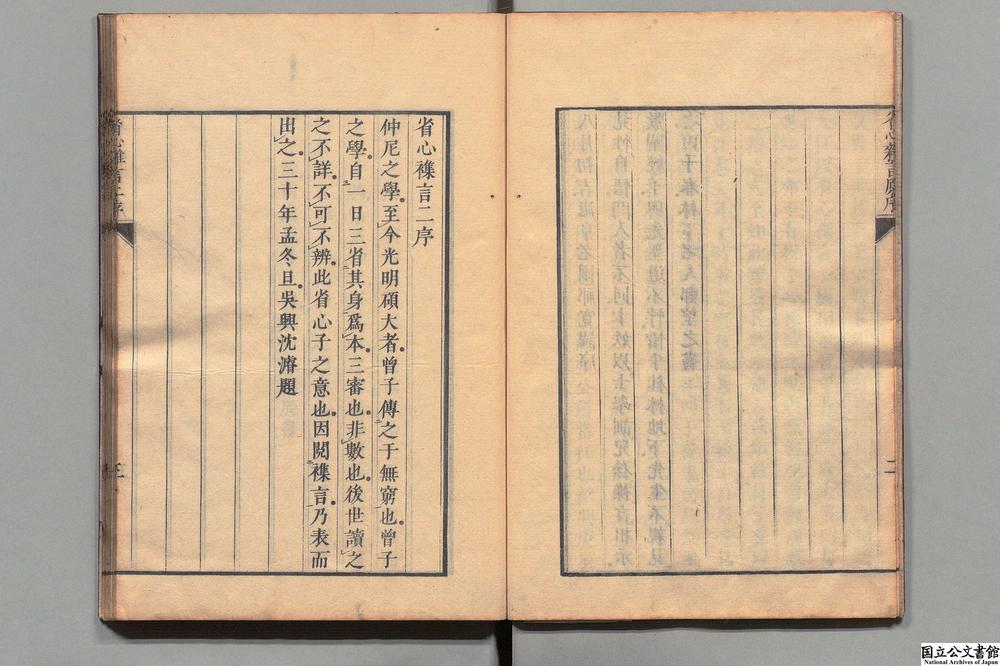 省心襍言二序
仲尼之學至今光明碩大者曾子傳之于無窮也曾子
之學自一日三省其身爲本三審也非數也後世讀之
之不詳不可不辨此省心子之意也因閱襍言乃表而
出之三十年孟冬旦吳興沈濬題
省心雜言二序
三
二
国立公文書館
National Archives of Japan